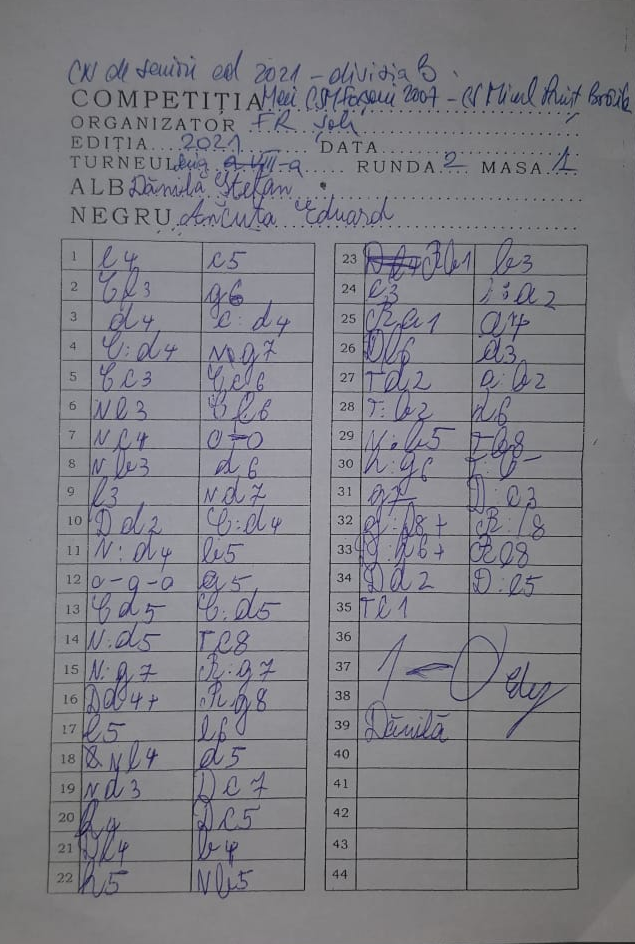 CN de seniori ed 2021 - divizia B.
COMPETIȚIA Meci CSM Focșani 2007 - CS Micul Prinț Brăila
ORGANIZATOR FR Șah
EDIȚIA 2021 DATA
TURNEUL a VIII-a RUNDA 2 MASA 1
ALB Dănilă Ștefan
NEGRU Ancuța Eduard
1 e4 c5
2 Cf3 g6
3 d4 c:d4
4 C:d4 Ng7
5 Cc3 Cc6
6 Ne3 Cf6
7 Nc4 0-0
8 Nb3 d6
9 f3 Nd7
10 Dd2 C:d4
11 N:d4 b5
12 0-0-0 a5
13 Cd5 C:d5
14 N:d5 Tc8
15 N:g7 R:g7
16 Dd4+ Rg8
17 e5 e6
18 Ne4 d5
19 Nd3 Dc7
20 Dc5
21 b4
22 h5 Nb5
23 Rb1 b3
24 c3 :a2
25 Ra1 a4
26 Df6 a3
27 Td2 a:b2
28 T:b2 h6
29 N:b5 Tb8
30 h:g6
31 g7 D:c3
32 g:f8+ R:f8
33 D:h6+ Re8
34 Dd2 D:e5
35 Te1
36
37 1-0
38
39 Dănilă
40
41
42
43
44